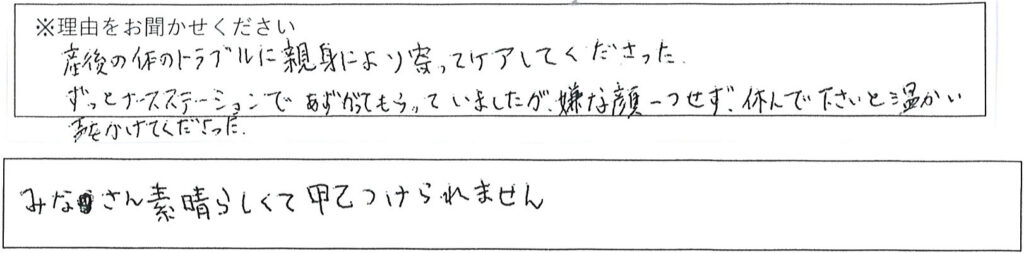 ※理由をお聞かせください
産後の体のトラブルに親身により寄ってケアしてくださった.
ずっとナースステーションであずかってもらっていましたが、嫌な顔一つせず、休んで下さいと温かい
声をかけてくださった.
みなさん素晴らしくて甲乙つけられません